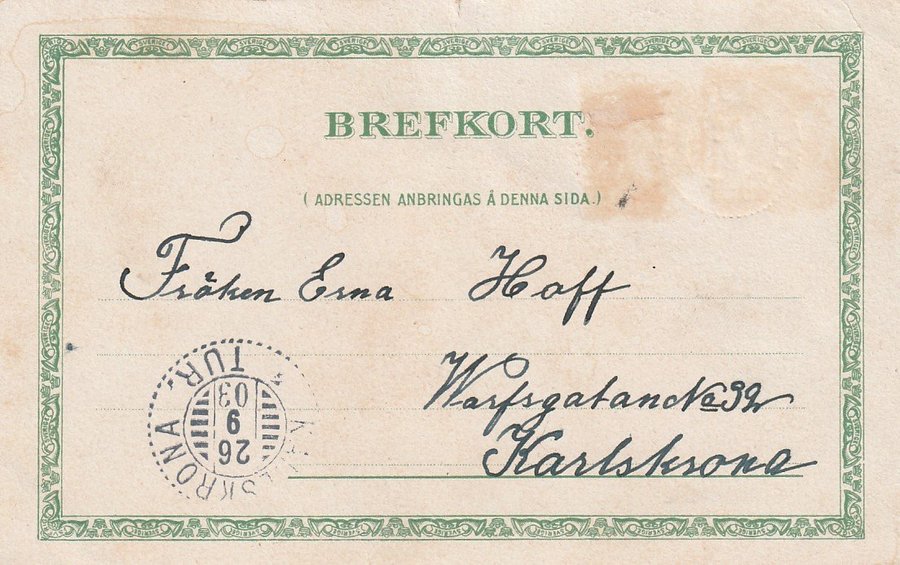 BREFKORT.
(ADRESSEN ANBRINGAS Å DENNA SIDA.)
Fröken Erna Hoff
Warfsgatan No 32
Karlskrona
KARLSKRONA TUR.
26 9 03
SVERIGE